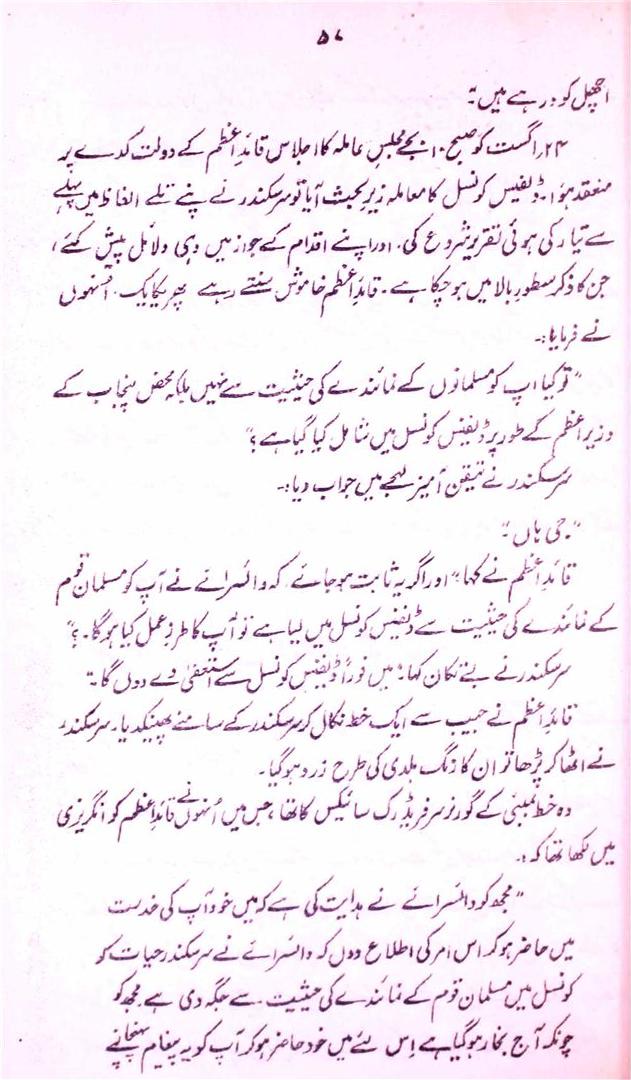 ۵۷
اچھل کود رہے ہیں"۔
۲۴؍ اگست کو صبح ۱۰ بجے مجلسِ عاملہ کا اجلاس قائدِاعظم کے دولت کدے پر
منعقد ہؤا۔ ڈیفنس کونسل کا معاملہ زیرِ بحث آیا تو سر سکندر نے اپنے نپے تلے الفاظ میں پہلے
سے تیار کی ہوئی تقریر شروع کی، اور اپنے اقدام کے جواز میں وہی دلائل پیش کئے،
جن کا ذکر سطورِ بالا میں ہو چکا ہے۔ قائدِاعظم خاموش سنتے رہے پھر یکایک اُنہوں
نے فرمایا:۔
"تو کیا آپ کو مسلمانوں کے نمائندے کی حیثیت سے نہیں بلکہ محض پنجاب کے
وزیراعظم کے طور پر ڈیفنس کونسل میں شامل کیا گیا ہے؟"
سر سکندر نے تیقن آمیز لہجے میں جواب دیا:۔
"جی ہاں"۔
قائدِاعظم نے کہا، "اور اگر یہ ثابت ہو جائے، کہ وائسرائے نے آپ کو مسلمان قوم
کے نمائندے کی حیثیت سے ڈیفنس کونسل میں لیا ہے تو آپ کا طرزِ عمل کیا ہوگا۔؟"
سر سکندر نے بے تکان کہا، "میں فوراً ڈیفنس کونسل سے استعفیٰ دے دوں گا"۔
قائدِاعظم نے جیب سے ایک خط نکال کر سر سکندر کے سامنے پھینک دیا۔ سر سکندر
نے اٹھا کر پڑھا تو ان کا رنگ ہلدی کی طرح زرد ہو گیا۔
وہ خط بمبئی کے گورنر سر فریڈرک سائیکس کا تھا، جس میں اُنہوں نے قائدِاعظم کو انگریزی
میں لکھا تھا کہ:۔
"مجھ کو وائسرائے نے ہدایت کی ہے کہ میں خود آپ کی خدمت
میں حاضر ہو کر اس امر کی اطلاع دوں کہ وائسرائے نے سر سکندر حیات کو
کونسل میں مسلمان قوم کے نمائندے کی حیثیت سے جگہ دی ہے۔ مجھ کو
چونکہ آج بخار ہو گیا ہے اِس لئے میں خود حاضر ہو کر آپ کو یہ پیغام پہنچانے